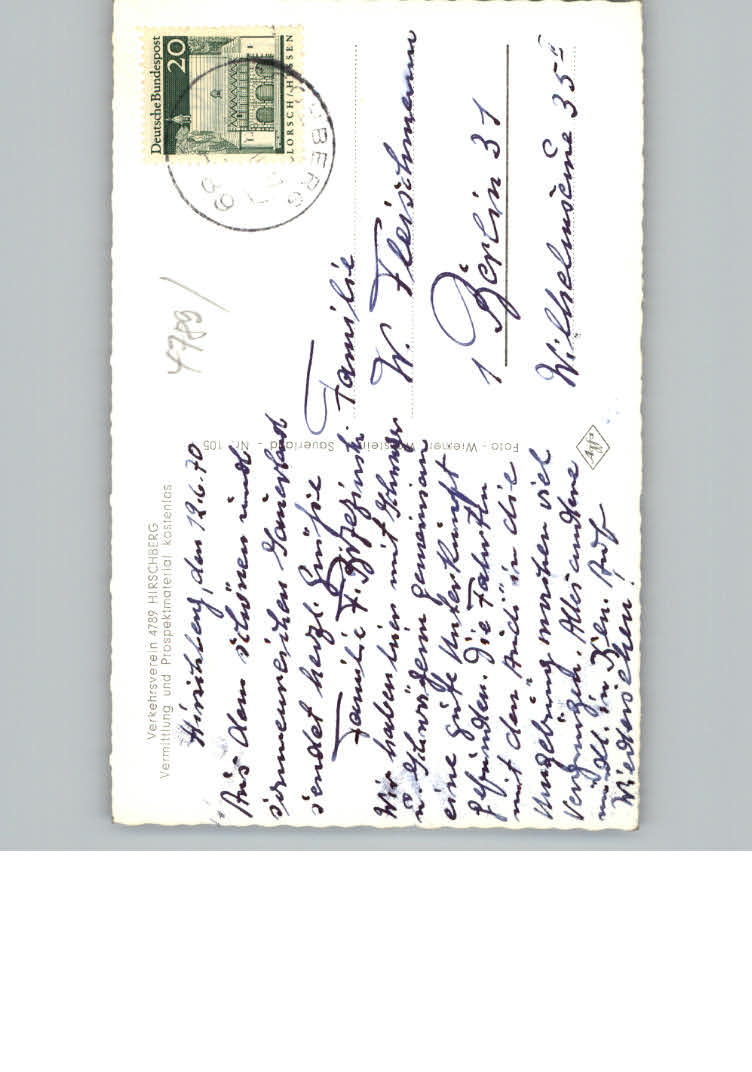 Verkehrsverein 4789 HIRSCHBERG
Vermittlung und Prospektmaterial kostenlos
Hirschberg, den 12.6.70
Aus dem schönen und
sonnenreichen Sauerland
sendet herzl. Grüße
Familie F. Brzezinski
Wir haben hier mit Schwager
u. Schwägerin gemeinsam
eine gute Unterkunft
gefunden. Die Fahrten
mit dem Audi in die
Umgebung machten viel
Vergnügen. Alles andere
mündl. in Bln. Auf
Wiedersehen!
Foto - Wiemer, Warstein Sauerland - Nr. 105
Agfa
4789/
Deutsche Bundespost
20
LORSCH/HESSEN
Familie
W. Fleischmann
1 Berlin 31
Wilhelmsaue 35 II